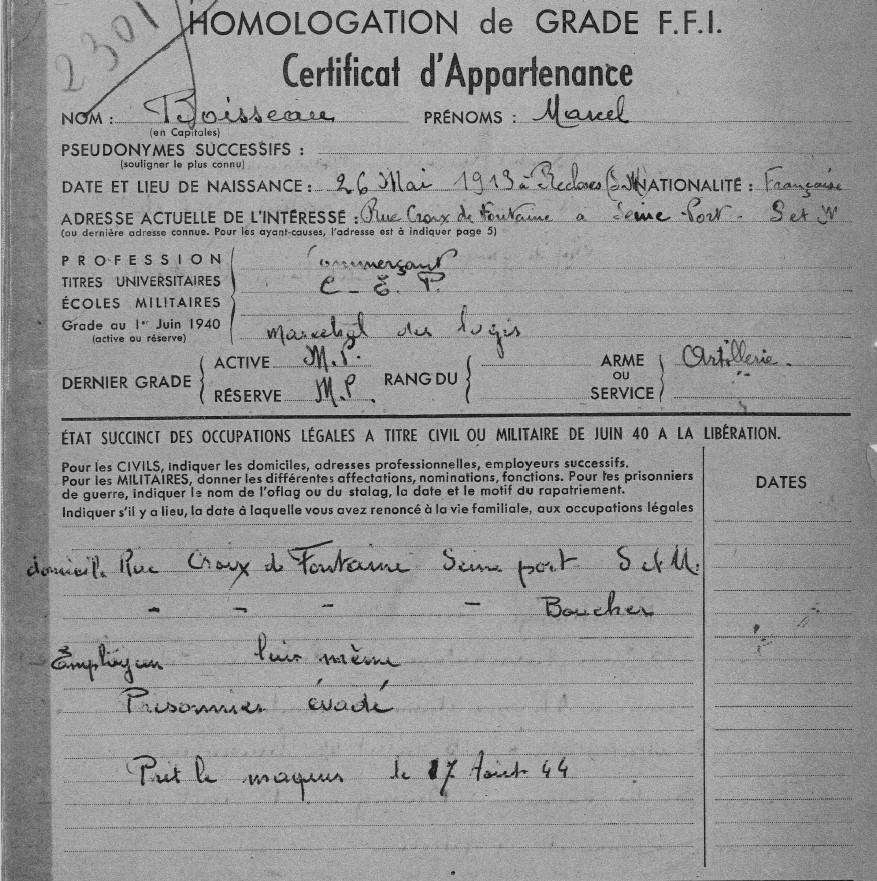 2301
HOMOLOGATION de GRADE F.F.I.
Certificat d'Appartenance
NOM : Boisseau PRÉNOMS : Marcel
(en Capitales)
PSEUDONYMES SUCCESSIFS :
(souligner le plus connu)
DATE ET LIEU DE NAISSANCE : 26 Mai 1913 à Recloses (S.M) NATIONALITÉ : Française
ADRESSE ACTUELLE DE L'INTÉRESSÉ : Rue Croix de Fontaine a Seine-Port - S et M
(ou dernière adresse connue. Pour les ayant-causes, l'adresse est à indiquer page 5)
PROFESSION Commerçant
TITRES UNIVERSITAIRES C - E. P.
ÉCOLES MILITAIRES
Grade au 1er Juin 1940 marechal des logis
(active ou réserve)
DERNIER GRADE ACTIVE M.P. RANG DU ARME Artillerie.
OU
RÉSERVE M.P. SERVICE
ÉTAT SUCCINCT DES OCCUPATIONS LÉGALES A TITRE CIVIL OU MILITAIRE DE JUIN 40 A LA LIBÉRATION.
Pour les CIVILS, indiquer les domiciles, adresses professionnelles, employeurs successifs.
Pour les MILITAIRES, donner les différentes affectations, nominations, fonctions. Pour les prisonniers
de guerre, indiquer le nom de l'oflag ou du stalag, la date et le motif du rapatriement.
Indiquer s'il y a lieu, la date à laquelle vous avez renoncé à la vie familiale, aux occupations légales
DATES
domicile Rue Croix de Fontaine Seine port S et M.
- - - - Boucher
Employeur lui même
Prisonnier évadé
Prit le maquis le 17 Aout 44